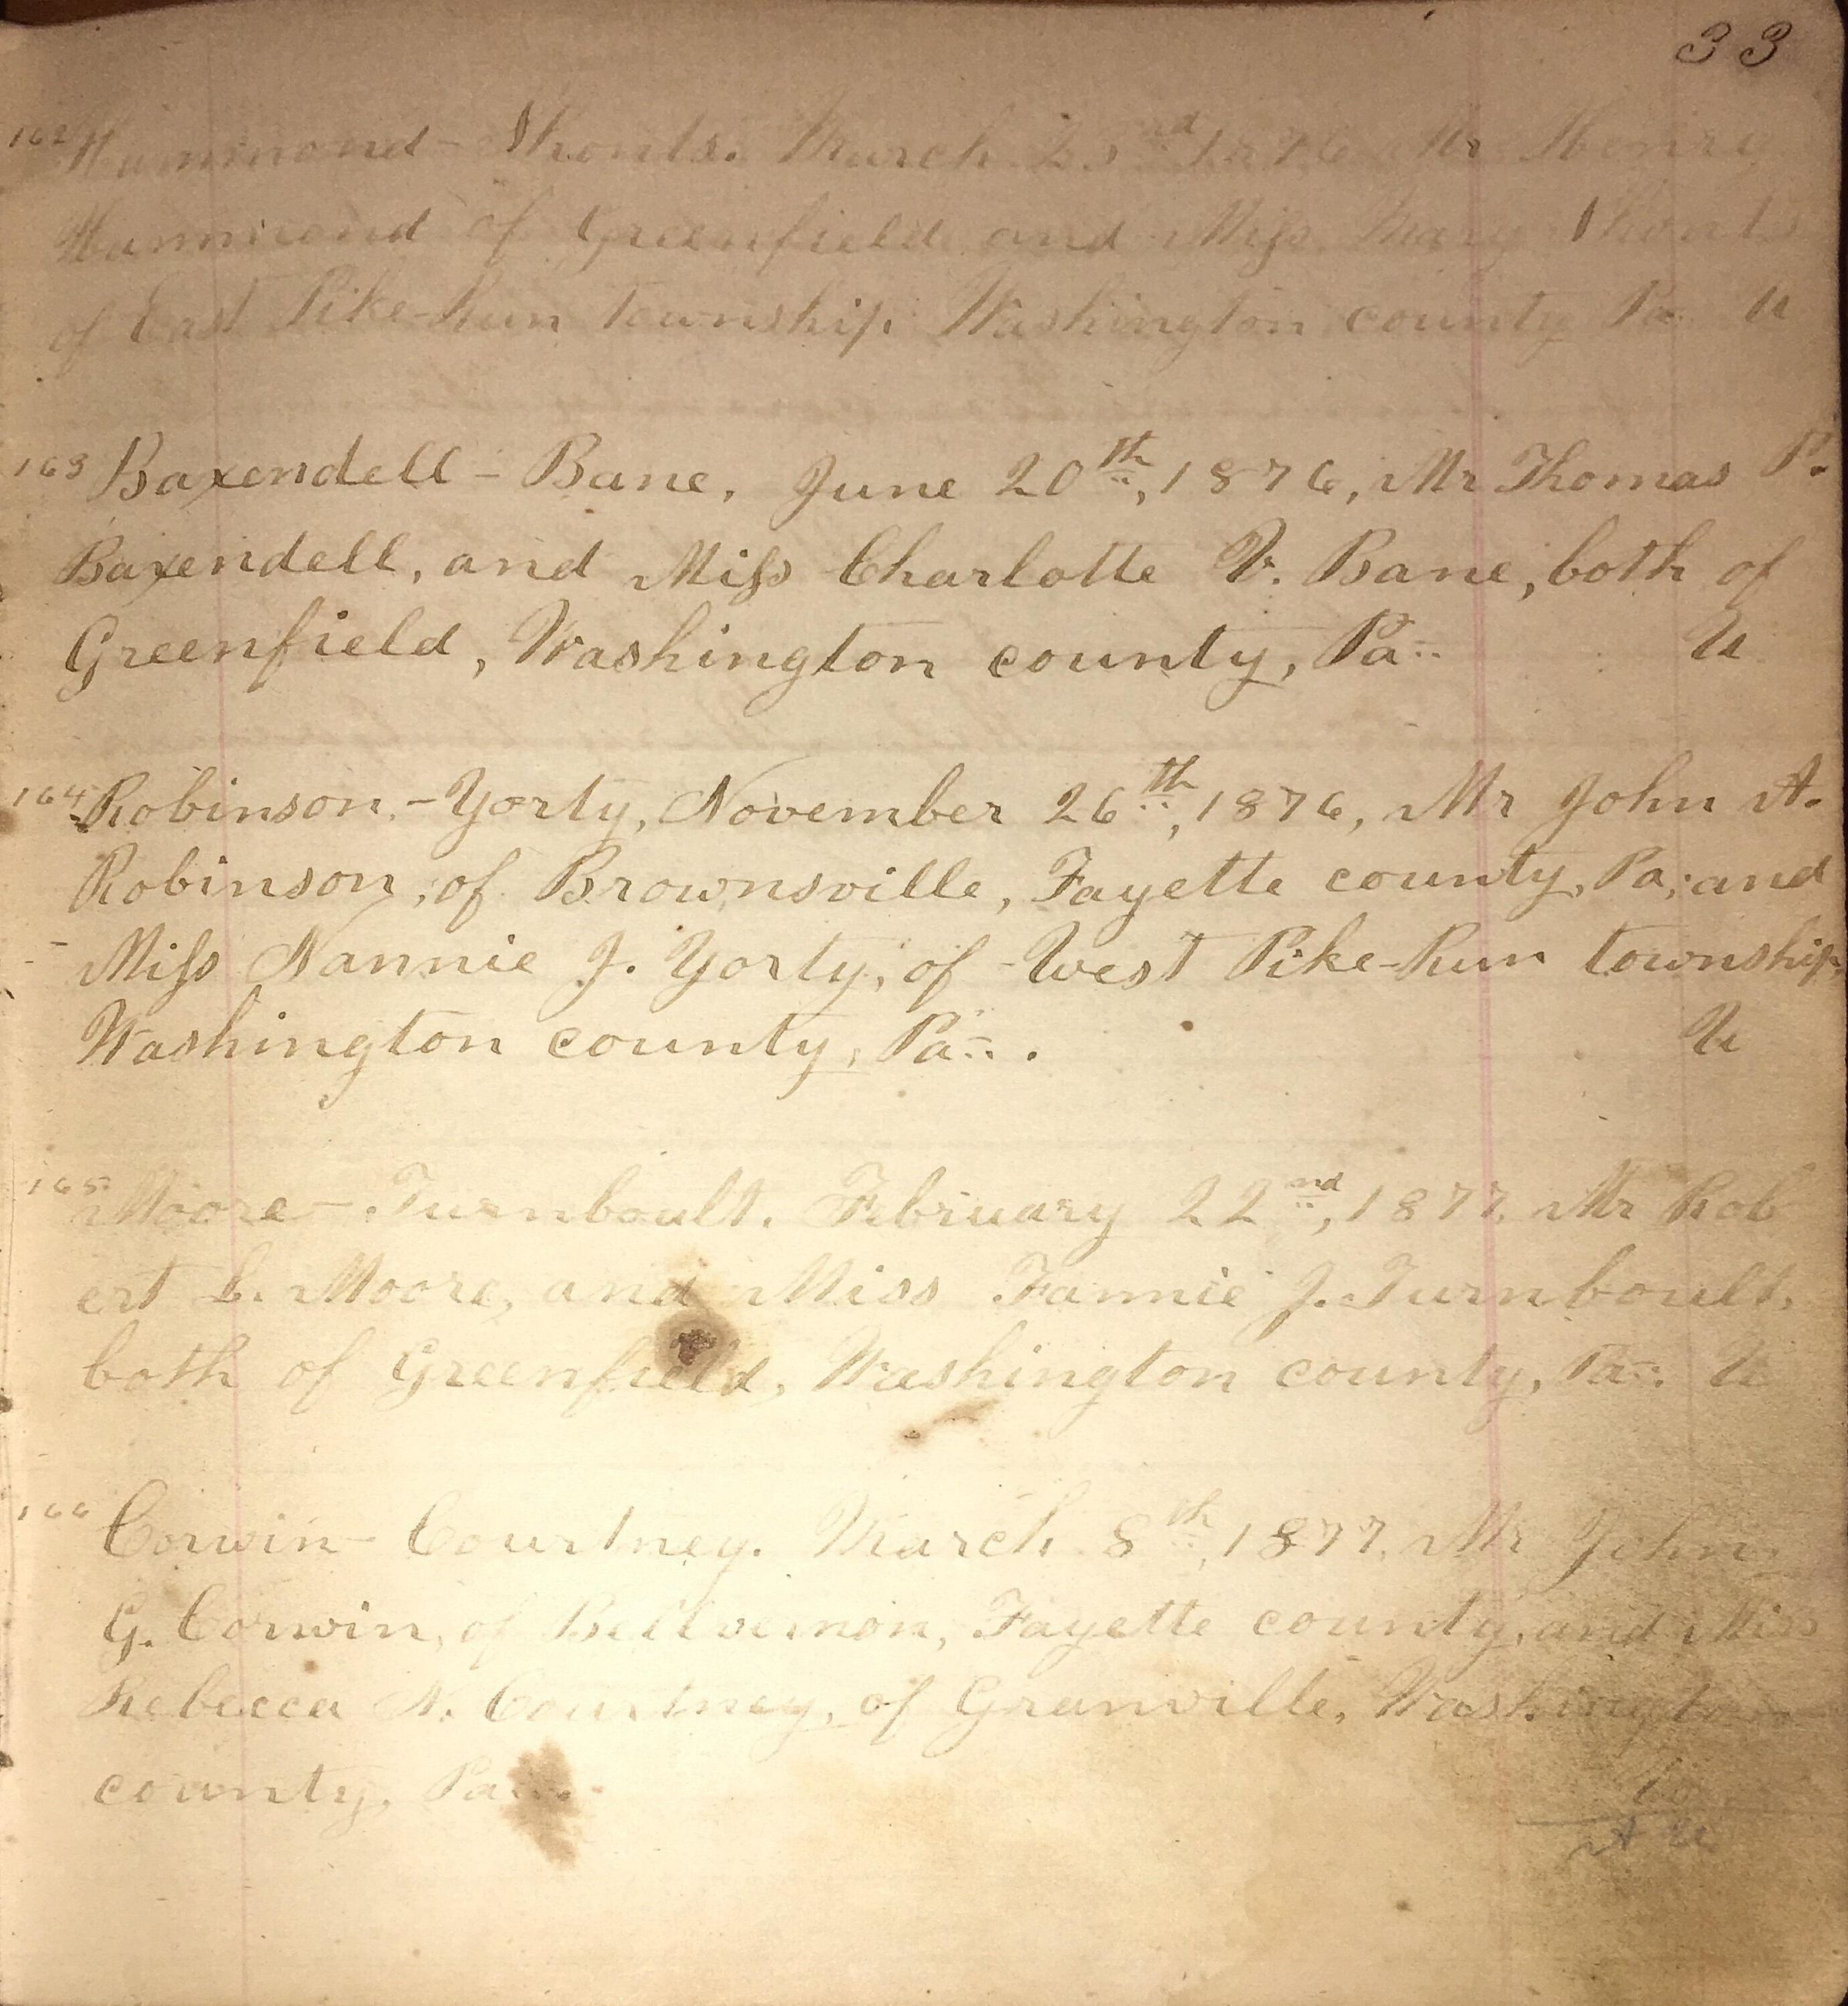 33
162 Hammond - Shonts. March 23rd 1876 Mr Henry
Hammond of Greenfield and Miss Mary Shonts
of East Pike-Run township Washington county Pa U
163 Baxendell - Bane, June 20th, 1876, Mr Thomas P.
Baxendell, and Miss Charlotte V. Bane, both of
Greenfield, Washington county, Pa U
164 Robinson - Yorty, November 26th, 1876, Mr John A.
Robinson, of Brownsville, Fayette county, Pa; and
Miss Nannie J. Yorty, of West Pike-Run township
Washington county, Pa. U
165 Moore - Turnboult. February 22nd, 1877, Mr Rob
ert L. Moore, and Miss Fannie J. Turnboult,
both of Greenfield, Washington county, Pa. U
166 Corwin - Courtney. March 8th, 1877, Mr John
G. Corwin, of Bellvernon, Fayette county, and Miss
Rebecca N. Courtney, of Granville, Washington
county, Pa